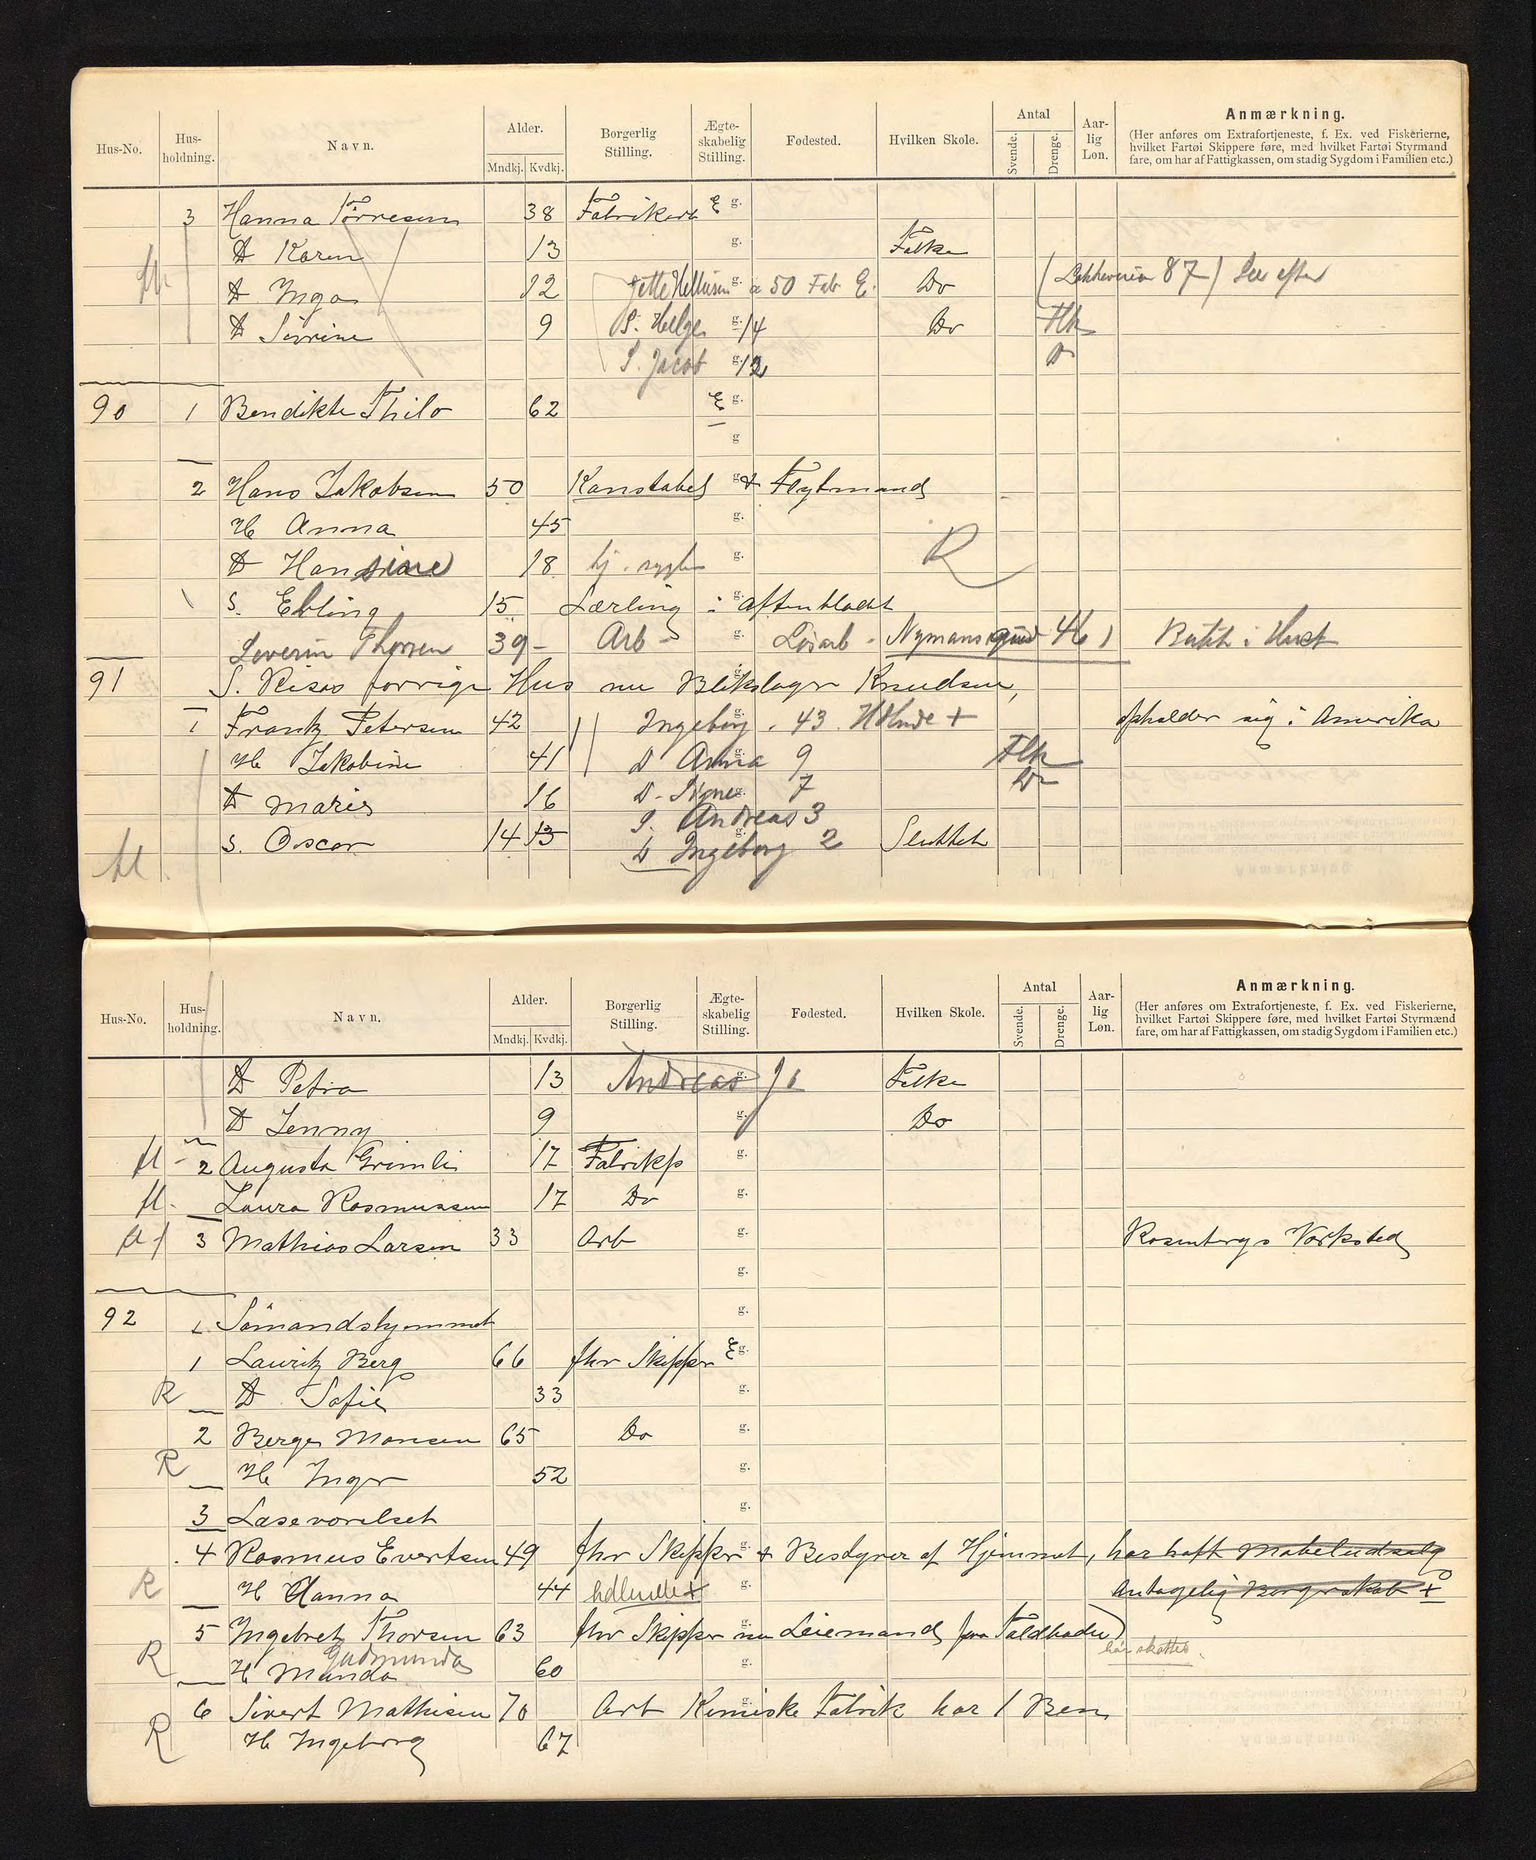 Hus-No. Hus-holdning. Navn. Alder. Mndkj. Kvdkj. Borgerlig Stilling. Ægte-skabelig Stilling. Fødested. Hvilken Skole. Antal Svende. Drenge. Aar-lig Løn. Anmærkning.
(Her anføres om Extrafortjeneste, f. Ex. ved Fiskerierne, hvilket Fartøi Skippere føre, med hvilket Fartøi Styrmænd fare, om har af Fattigkassen, om stadig Sygdom i Familien etc.)
3 Hanna Tørresen 38 Fabrikarb E g.
D Karen 13 g. Folke
fl. D Inga 12 Jette Hellisen g. a 50 Fab E. Do ( 87 ) See efter
D Sivrine 9 S. Helge g. 14 Do Flk
S. Jacob g. 12 D
90 1 Bendikte Thilo 62 E g.
g
2 Hans Jakobsen 50 Konstabel g. & Flytmand
H Anna 45 g.
D Hansine 18 hj. g. R
S. Ebling 15 Lærling i g. Aftenbladet
Severin Thorsen 39 - Arb - g. Løsarb - Nymansgaard 46 ) Butik i Huset
91 S. Risas forrige Hus nu Blikslager Knudsen,
1 Frantz Petersen 42 Ingeborg g. 43. Hdlende + opholder sig i Amerika
H Jakobine 41 D Anna 9 Flk
D Maria 16 D - Signe g. 7 Do
S. Andreas 3
fl. S. Oscar 14 13 D Ingeborg 2 Sluttet
Hus-No. Hus-holdning. Navn. Alder. Mndkj. Kvdkj. Borgerlig Stilling. Ægte-skabelig Stilling. Fødested. Hvilken Skole. Antal Svende. Drenge. Aar-lig Løn. Anmærkning.
(Her anføres om Extrafortjeneste, f. Ex. ved Fiskerierne, hvilket Fartøi Skippere føre, med hvilket Fartøi Styrmænd fare, om har af Fattigkassen, om stadig Sygdom i Familien etc.)
D Petra 13 Andreas g. Folke
D Jenny 9 g. Do
fl - 2 Augusta Grimli 17 Fabrikp g.
fl. Laura Rasmussen 17 Do g.
fl 3 Mathias Larsen 33 Arb g. Rosenbergs Værksted
g.
92 Sømandshjemmet g.
1 Lauritz Berg 66 fhv Skipper E g.
R D Sofie 33 g.
2 Berge Monsen 65 Do g.
R H Inger 52 g.
3 Læseværelset g.
4 Rasmus Evertsen 49 fhv Skipper g. & Bestyrer af Hjemmet, har haft Møbeludsalg
R H Hanna 44 hdlende + g. Antagelig Borgerskab +
5 Ingebret Thorsen 63 fhv Skipper g. nu Leiemand paa Toldboden har skattet
R H Munda Gudmunda 60 g.
6 Sivert Mathisen 70 Arb g. Kemiske Fabrik har 1 Ben
R H Ingeborg 67